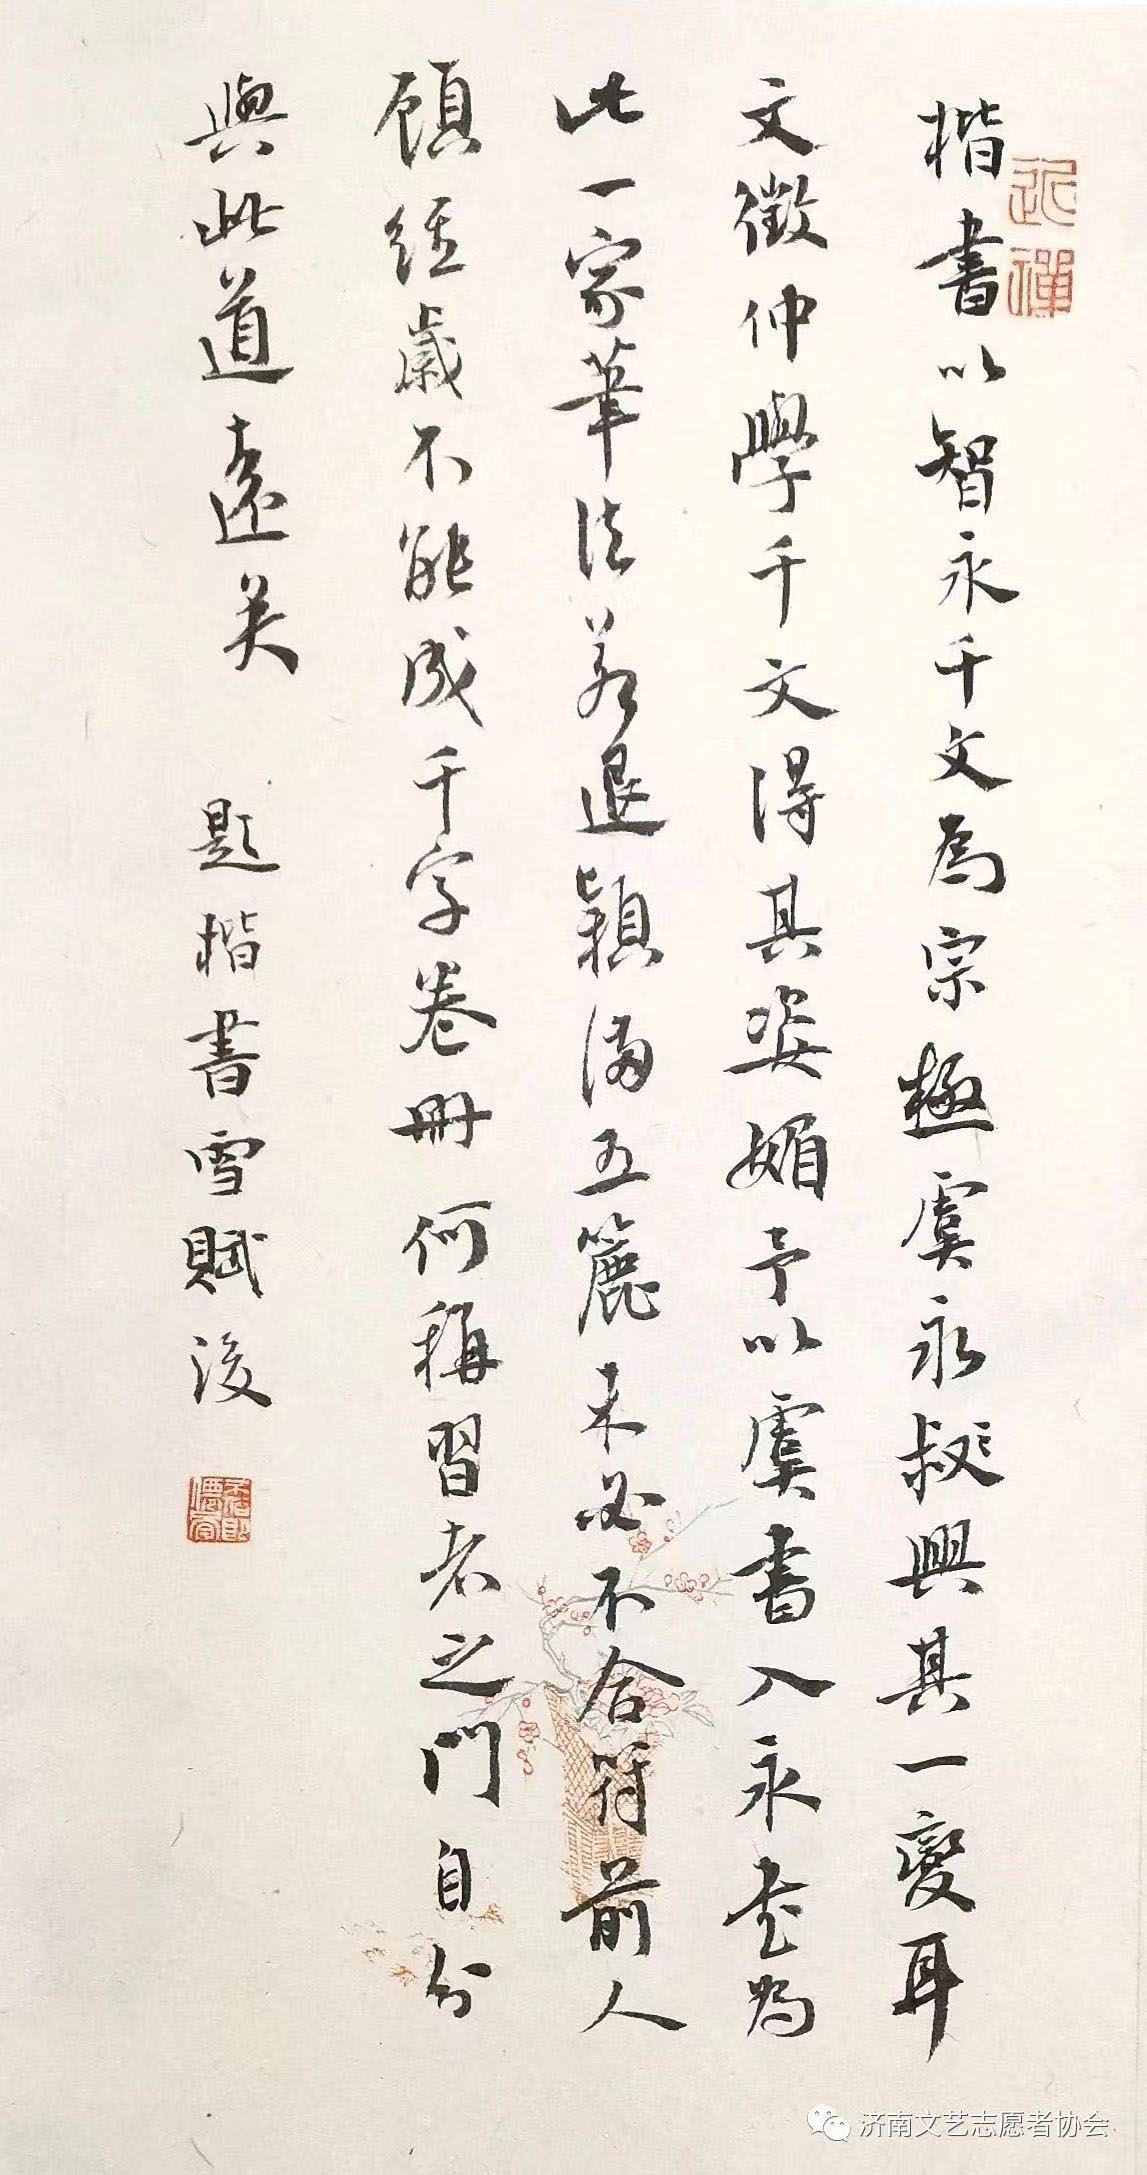 楷書以智永千文為宗極虞永叔興其一變耳
文徵仲學千文得其姿媚予以虞書入永書為
此一家筆法若退穎滿五簏未必不合符前人
顧經歲不能成千字卷冊何稱習者之門自分
與此道遠矣 題楷書雪賦後
济南文艺志愿者协会